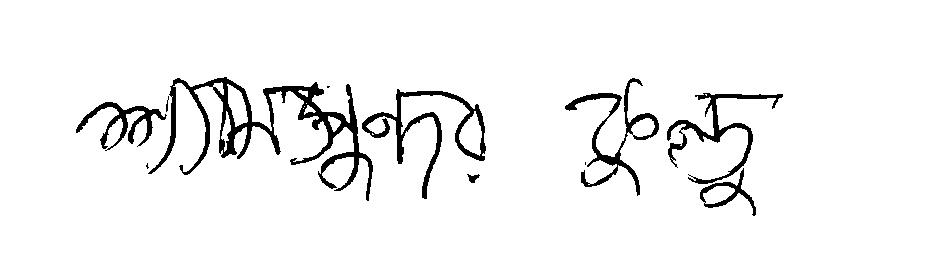 শ্যামসুন্দর কুন্ডু